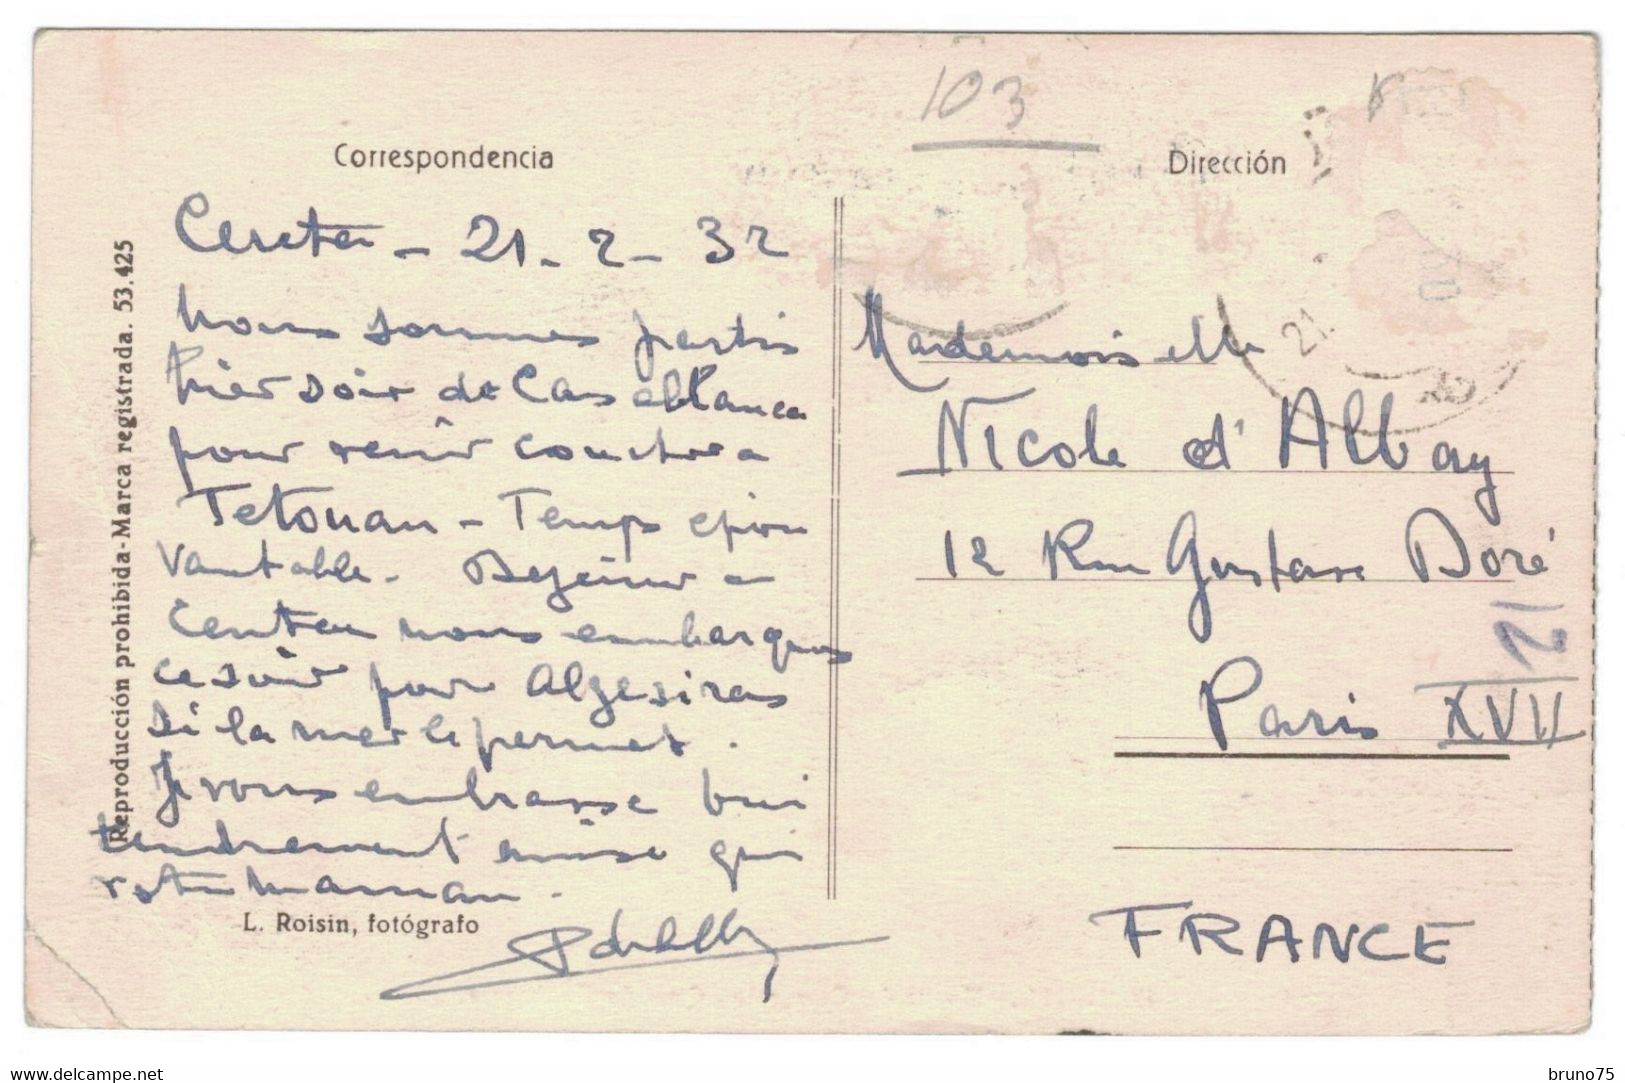 103
Correspondencia
Dirección
Ceuta - 21 - 2 - 32
Nous sommes partis
hier soir de Casablanca
pour venir coucher a
Tetouan - Temps épou
vantable. Dejeuner a
Ceuta nous embarquons
ce soir pour Algesiras
si la mer le permet.
Je vous embrasse bien
tendrement ainsi que
votre maman.
Mademoiselle
Nicole d'Albay
12 Rue Gustave Doré
Paris XVII
21
FRANCE
21.
Reproducción prohibida-Marca registrada. 53.425
L. Roisin, fotógrafo
www.delcampe.net
bruno75